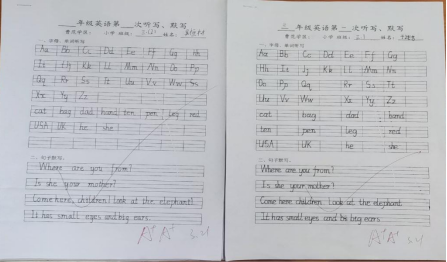 年级英语第 次听写、默写
Aa Bb Cc Dd Ee Ff Gg Hh
Ii Jj Kk Ll Mm Nn Oo Pp
Qq Rr Ss Tt Uu Vv Ww Ss
Xx Yy Zz
cat bag dad hand ten pen leg red
USA UK he she
二、句子默写。
Where are you from?
Is she your mother?
Come here, children! Look at the elephant!
It has small eyes and big ears.
A+ A+
三 年级英语第 一 次听写、默写
Aa Bb Cc Dd Ee Ff Gg
Hh Ii Jj Kk Ll Mm Nn
Oo Pp Qq Rr Ss Tt
Uu Vv Ww Xx Yy Zz
cat bag dad hand
ten pen leg red
USA UK he she
二、句子默写。
Where are you from?
Is she your mother?
Come here children Look at the elephant
It has small eyes and be big ears
A+ A+